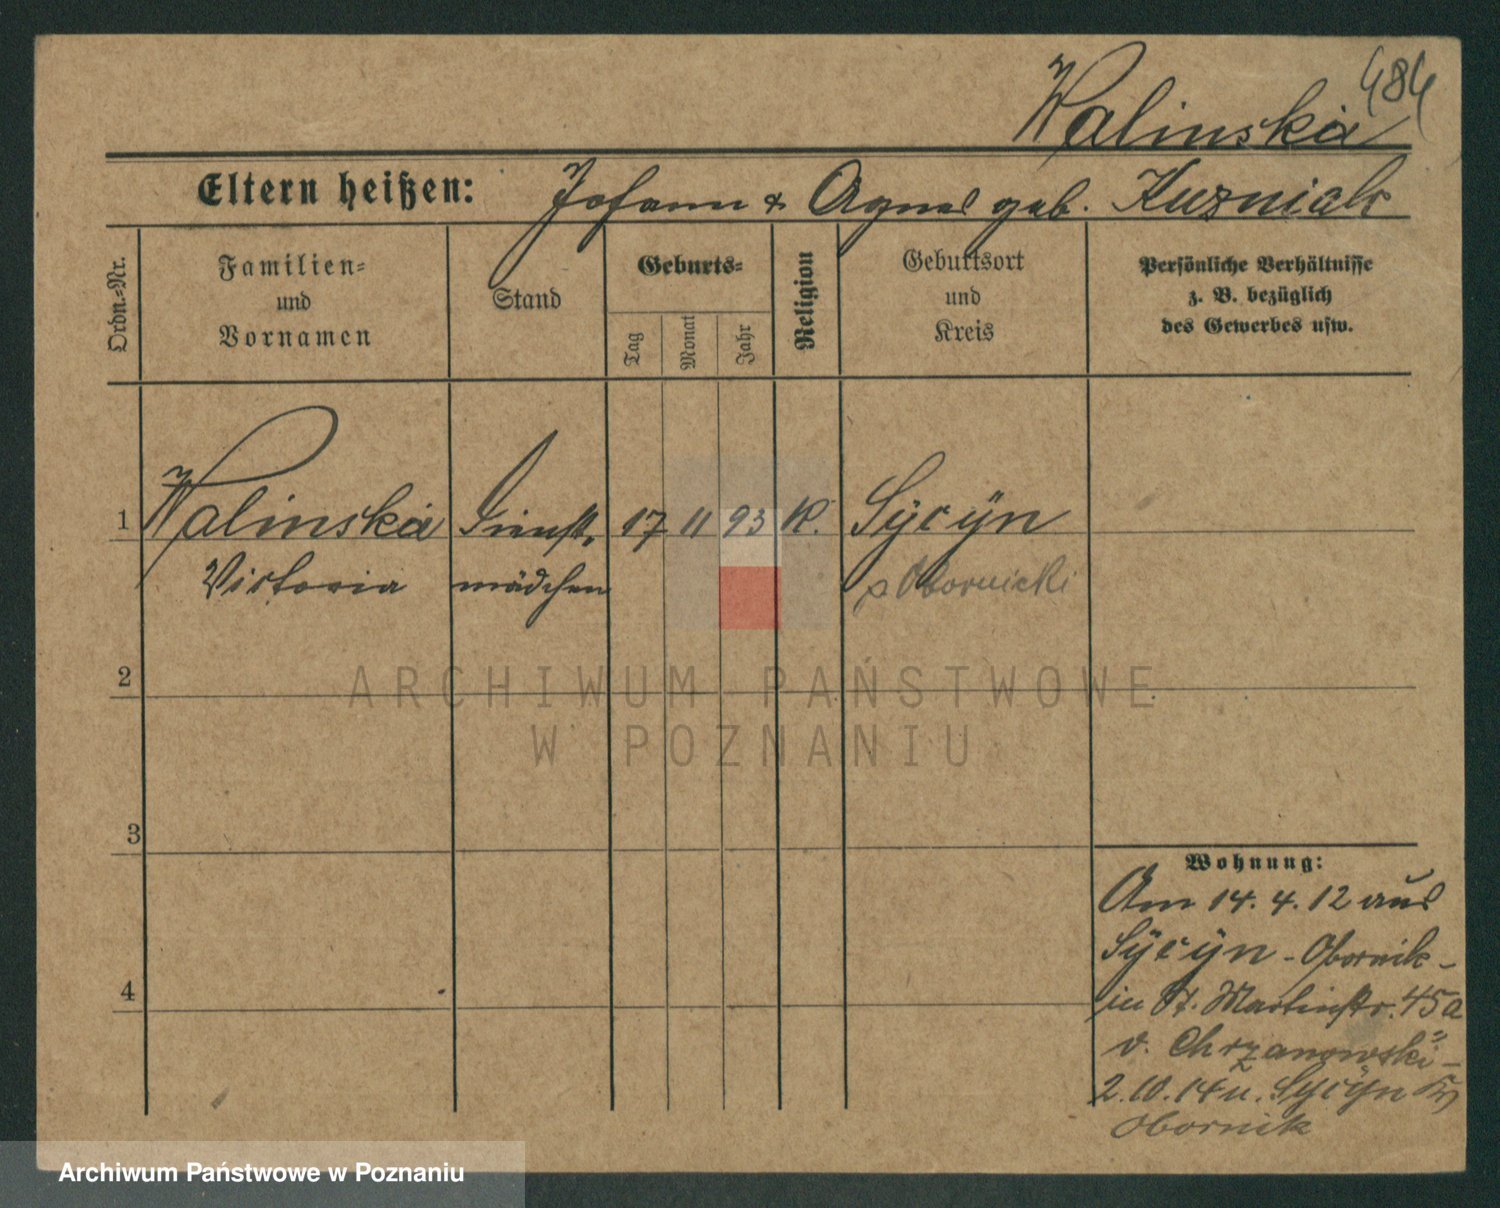 484
Walinska
Eltern heißen: Johann & Agnes geb. Kuzniak
Ordn.-Nr.
Familien-
und
Vornamen
Stand
Geburts-
Tag
Monat
Jahr
Religion
Geburtsort
und
Kreis
Persönliche Verhältnisse
z. B. bezüglich
des Gewerbes usw.
1 Walinska Dienst- 17 11 93 K. Sycyn
Victoria mädchen p Obornicki
2
3
4
Wohnung:
Am 14. 4. 12 aus
Sycyn - Obornik -
in St. Martinstr. 45a
v. Chrzanowski -
2.10.14 n. Sycyn Kr
Obornik
ARCHIWUM PAŃSTWOWE
W POZNANIU
Archiwum Państwowe w Poznaniu